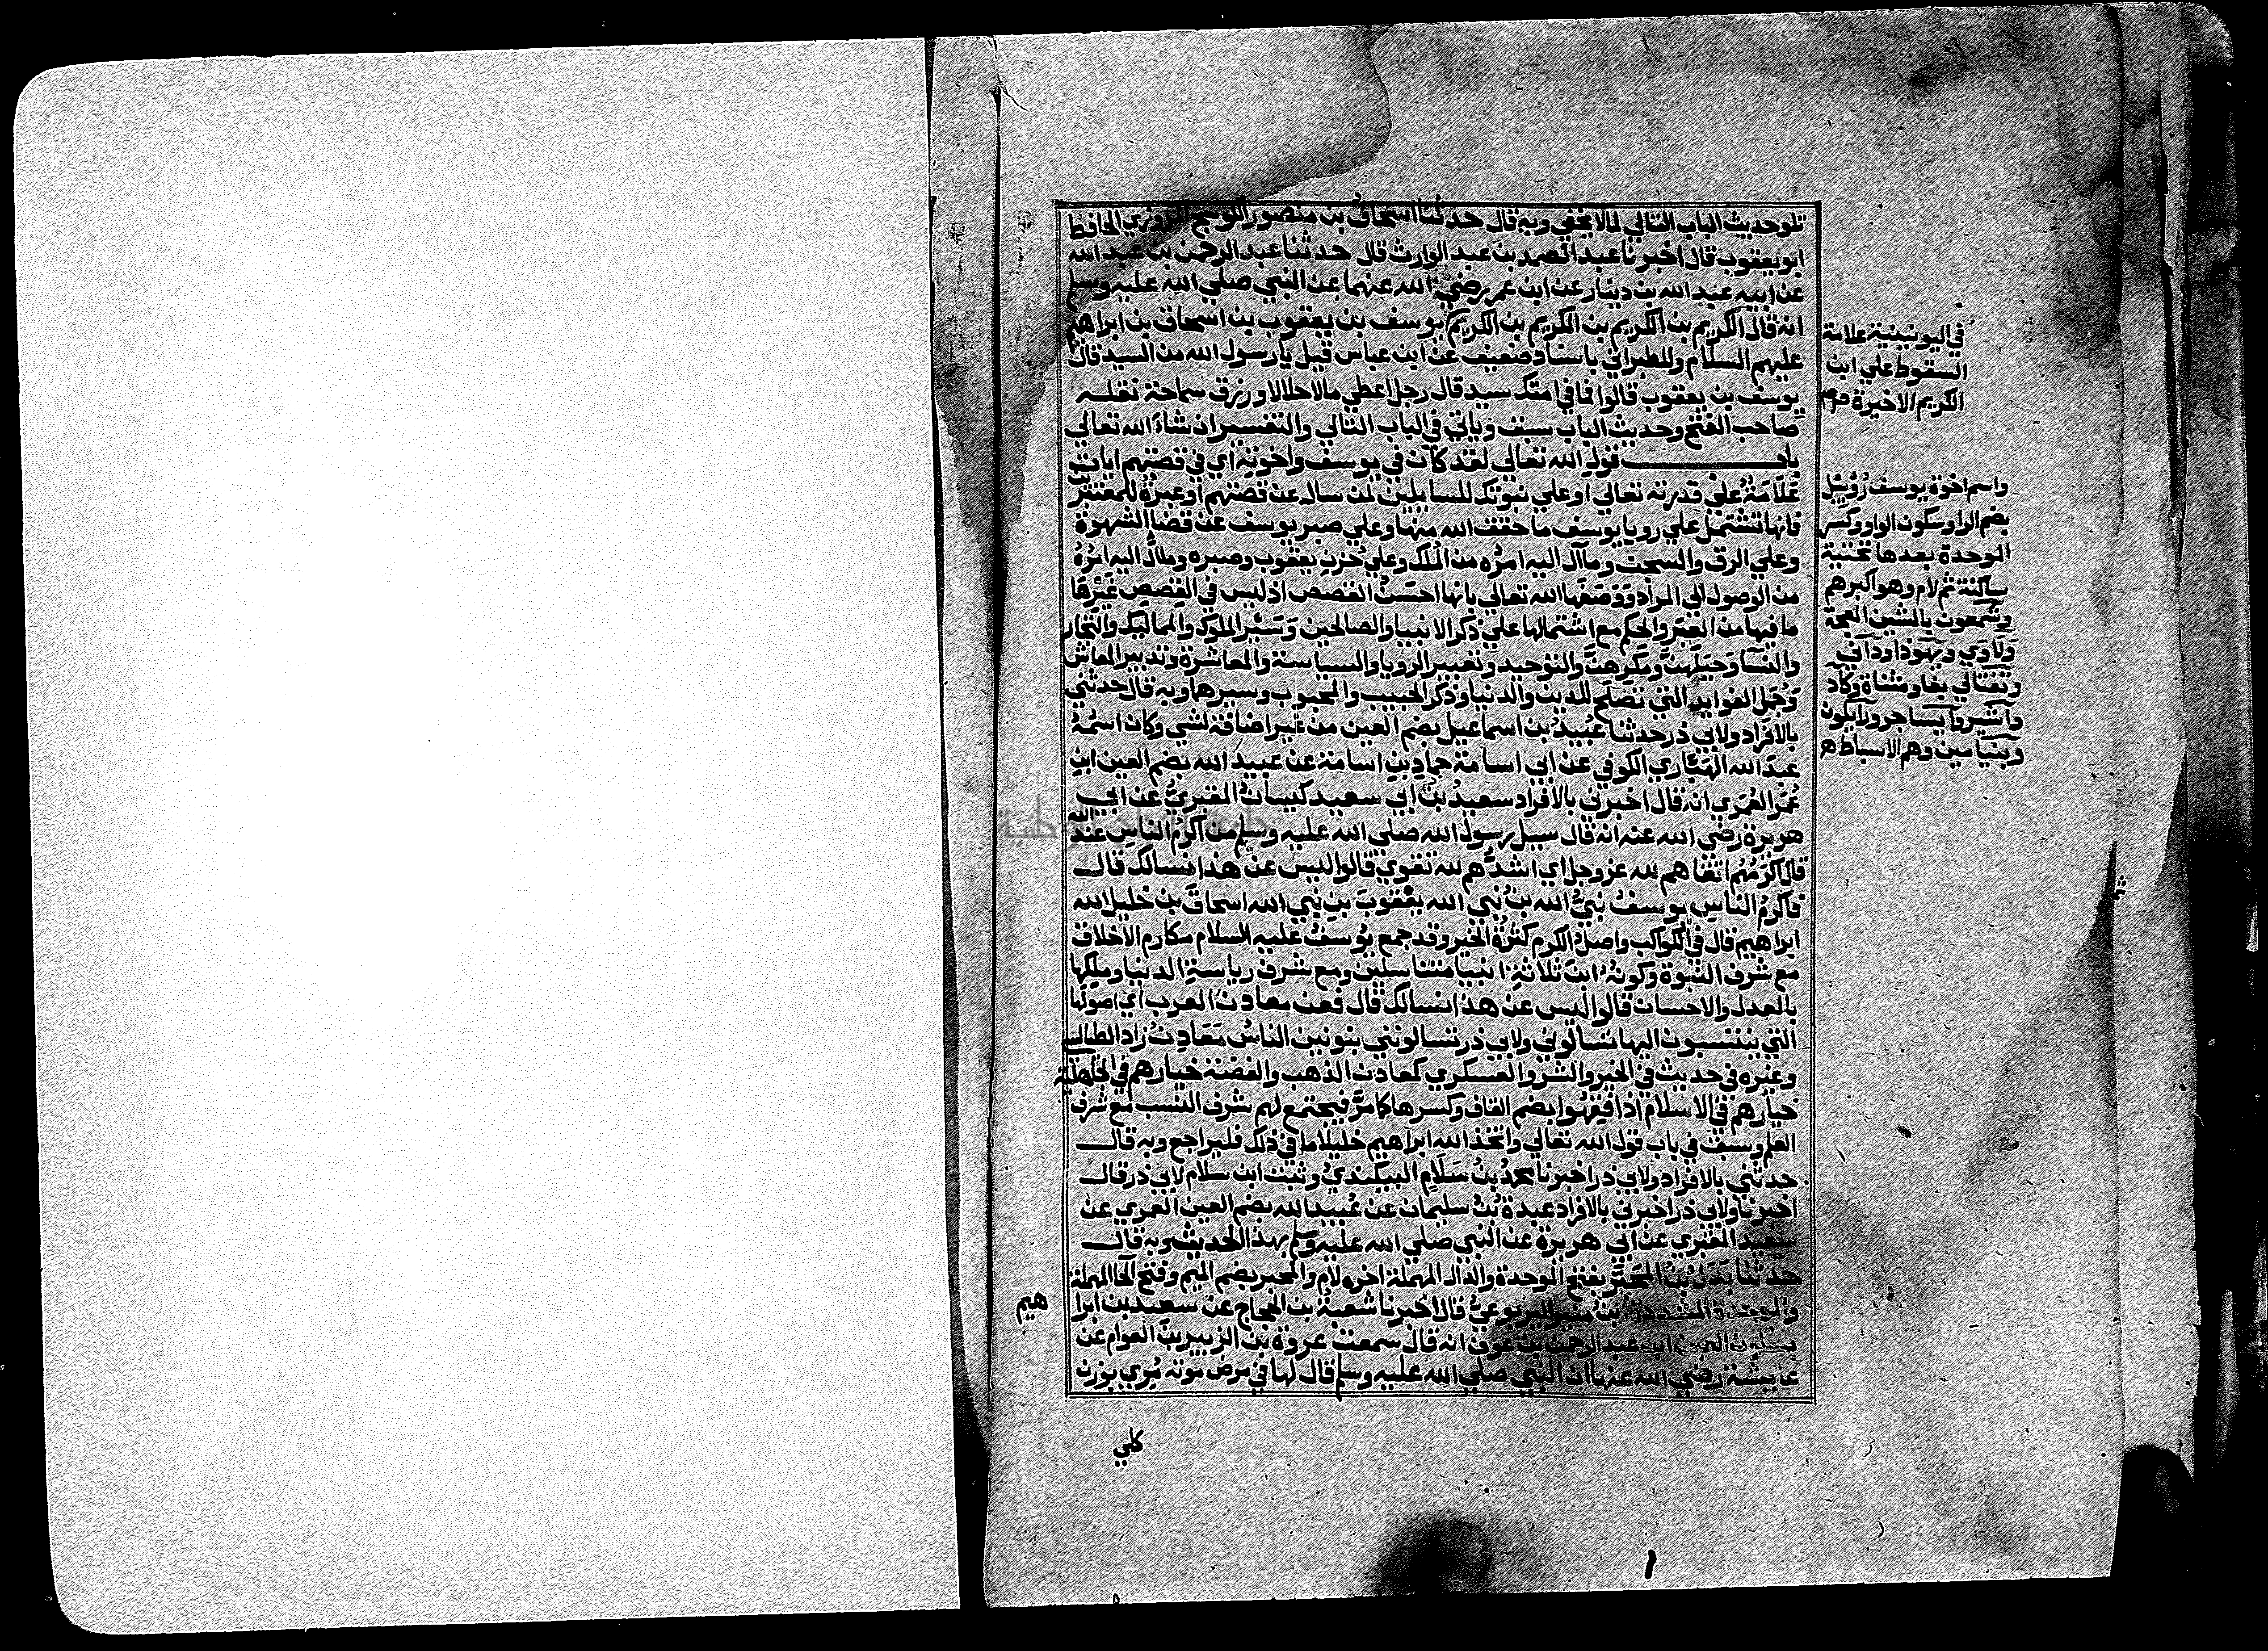 تلو حديث الباب التالي لما لا يخفي وبه قال حدثنا اسحاق بن منصور الكوسج المروزي الحافظ
ابو يعقوب قال اخبرنا عبد الصمد بن عبد الوارث قال حدثنا عبد الرحمن بن عبد الله
عن ابيه عبد الله بن دينار عن ابن عمر رضي الله عنهما عن النبي صلي الله عليه وسلم
انه قال الكريم بن الكريم بن الكريم بن الكريم يوسف بن يعقوب بن اسحاق بن ابراهيم
عليهم السلام وللطبراني باسناد ضعيف عن ابن عباس قيل يا رسول الله من السيد قال
يوسف بن يعقوب قالوا فما في امتك سيد قال رجل اعطي مالا حلالا ورزق سماحة نقله
صاحب الفتح وحديث الباب سبق وياتي في الباب التالي والتفسير ان شاء الله تعالي
باب قول الله تعالي لقد كان في يوسف واخوته اي في قصتهم ايات
علامة علي قدرته تعالي او علي نبوتك للسايلين لمن سال عن قصتهم او عبرة للمعتبر
فانها تشتمل علي رويا يوسف ما حقق الله منها وعلي صبر يوسف عن قضا الشهوة
وعلي الرق والسجن وما آل اليه امره من الملك وعلي حزن يعقوب وصبره وما آل اليه امره
من الوصول الي المراد ووصفها الله تعالي بانها احسن القصص اذ ليس في القصص غيرها
ما فيها من العبر والحكم مع اشتمالها علي ذكر الانبيا والصالحين وسير الملوك والمماليك والتجار
والنسا وحيلهن ومكرهن والتوحيد وتعبير الرويا والسياسة والمعاشرة وتدبير المعاش
وجمل الفوايد التي تصلح للدين والدنيا وذكر الحبيب والمحبوب وسيرها وبه قال حدثني
بالافراد ولابي ذر حدثنا عبيد بن اسماعيل بضم العين من غير اضافة لشي وكان اسمه
عبد الله الهباري الكوفي عن ابي اسامة حماد بن اسامة عن عبيد الله بضم العين ابن
عمر العمري انه قال اخبرني بالافراد سعيد بن ابي سعيد كيسان المقبري عن ابي
هريرة رضي الله عنه انه قال سيل رسول الله صلي الله عليه وسلم من اكرم الناس عند الله
قال اكرمهم اتقاهم لله عز وجل اي اشدهم لله تقوي قالوا ليس عن هذا نسالك قال
فاكرم الناس يوسف نبي الله بن نبي الله يعقوب بن نبي الله اسحاق بن خليل الله
ابراهيم قال في الكواكب واصل الكرم كثرة الخير وقد جمع يوسف عليه السلام مكارم الاخلاق
مع شرف النبوة وكونه ابن ثلاثة انبيا متناسلين ومع شرف رياسة الدنيا وملكها
بالعدل والاحسان قالوا ليس عن هذا نسالك قال فعن معادن العرب اي اصولها
التي ينتسبون اليها تسالوني ولابي ذر تسالونني بنونين الناس معادن زاد الطيالسي
وغيره في حديث في الخير والشر والعسكري كمعادن الذهب والفضة خيارهم في الجاهلية
خيارهم في الاسلام اذا فقهوا بضم القاف وكسرها كما مر فيجتمع لهم شرف النسب مع شرف
العلم وسبق في باب قول الله تعالي واتخذ الله ابراهيم خليلا ما في ذلك فليراجع وبه قال
حدثني بالافراد ولابي ذر اخبرنا محمد بن سلام البيكندي وثبت ابن سلام لابي ذر قال
اخبرنا ولابي ذر اخبرني بالافراد عبدة بن سليمان عن عبيد الله بضم العين العمري عن
سعيد المقبري عن ابي هريرة عن النبي صلي الله عليه وسلم بهذا الحديث وبه قال
حدثنا بدل بن المحبر بفتح الموحدة والدال المهملة اخره لام والمحبر بضم الميم وفتح الحا المهملة
والموحدة المشددة بن منير اليربوعي قال اخبرنا شعبة بن الحجاج عن سعد بن ابرا
هيم
بسكون العين ابن عبد الرحمن بن عوف انه قال سمعت عروة بن الزبير بن العوام عن
عايشة رضي الله عنها ان النبي صلي الله عليه وسلم قال لها في مرض موته مري بوزن
كلي
في اليونينية علامة
السقوط علي ابن
الكريم الاخيرة
واسم اخوة يوسف روبيل
بضم الرا وسكون الواو وكسر
الموحدة بعدها تحتية
ساكنة ثم لام وهو اكبرهم
وشمعون بالشين المعجمة
ولاوي ويهوذا وداني
ونفتالي بفا ومثناة وكاد
واشير وايساجر ورايلون
وبنيامين وهم الاسباط
١